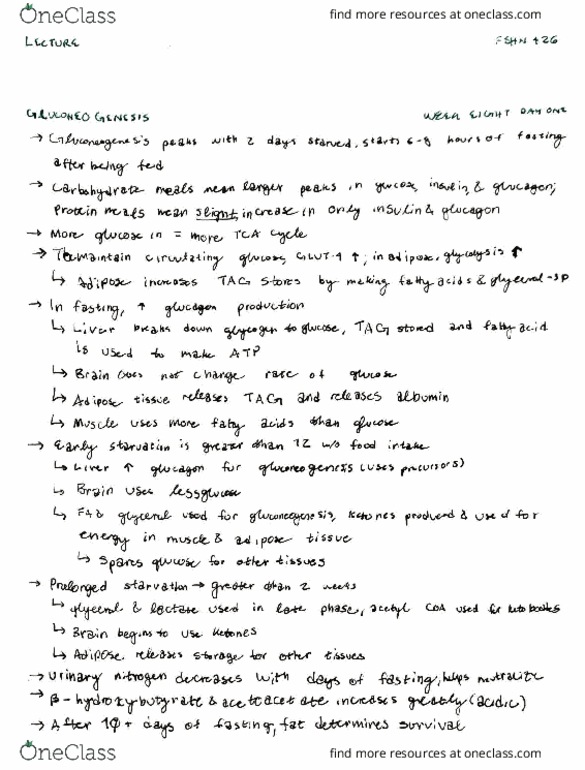 OneClass find more resources at oneclass.com
LECTURE FSHN 426
GLUCONEOGENESIS WEEK EIGHT DAY ONE
→ Gluconeogenesis peaks with 2 days starved, starts 6-8 hours of fasting
after being fed
→ Carbohydrate meals mean larger peaks in glucose, insulin, & glucagon;
Protein meals mean slight increase in only insulin & glucagon
→ More glucose in = more TCA cycle
→ To maintain circulating glucose, GLUT-4 ↑; in adipose, glycolysis ↑
↳ Adipose increases TAG stores by making fatty acids & glycerol-3P
→ In fasting, ↑ glucagon production
↳ Liver breaks down glycogen to glucose, TAG stored and fatty acid
is used to make ATP
↳ Brain does not change rate of glucose
↳ Adipose tissue releases TAG and releases albumin
↳ Muscle uses more fatty acids than glucose
→ Early starvation is greater than 12 w/o food intake
↳ Liver ↑ glucagon for gluconeogenesis (uses precursors)
↳ Brain uses less glucose
↳ FA & glycerol used for gluconeogenesis, ketones produced & used for
energy in muscle & adipose tissue
↳ Spares glucose for other tissues
→ Prolonged starvation → greater than 2 weeks
↳ glycerol & lactate used in late phase, acetyl COA used for keto bodies
↳ Brain begins to use ketones
↳ Adipose releases storage for other tissues
→ Urinary nitrogen decreases with days of fasting, helps neutralize
→ β-hydroxybutyrate & acetoacetate increases greatly (acidic)
→ After 10+ days of fasting, fat determines survival
OneClass find more resources at oneclass.com